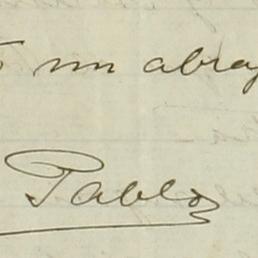 un abra
Pablo